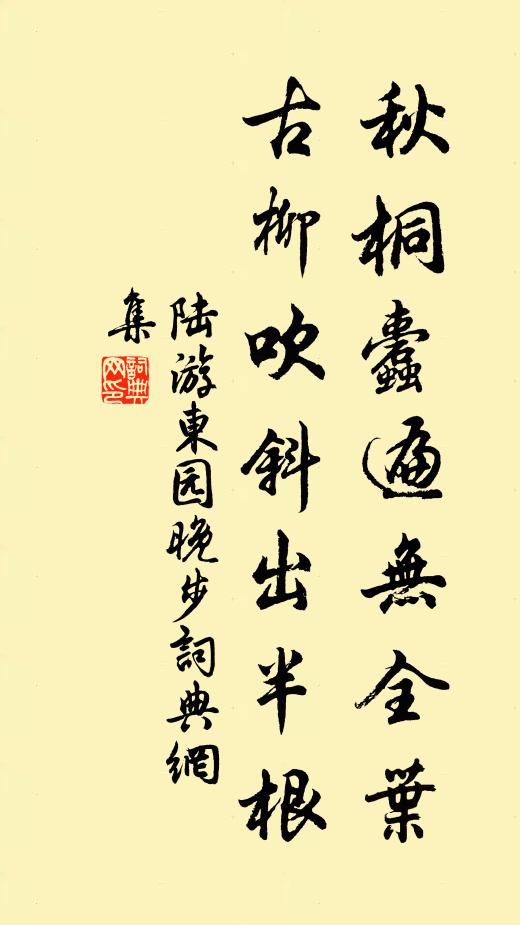 秋桐蠹遍無全葉
古柳吹斜出半根
陆游東园晚步詞典網
集
詞典
网印